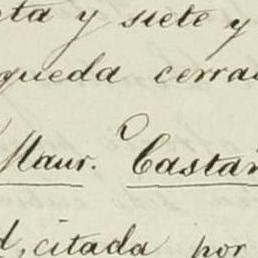 eta y siete y
queda cerra
Maur. Castañ
d, citada por